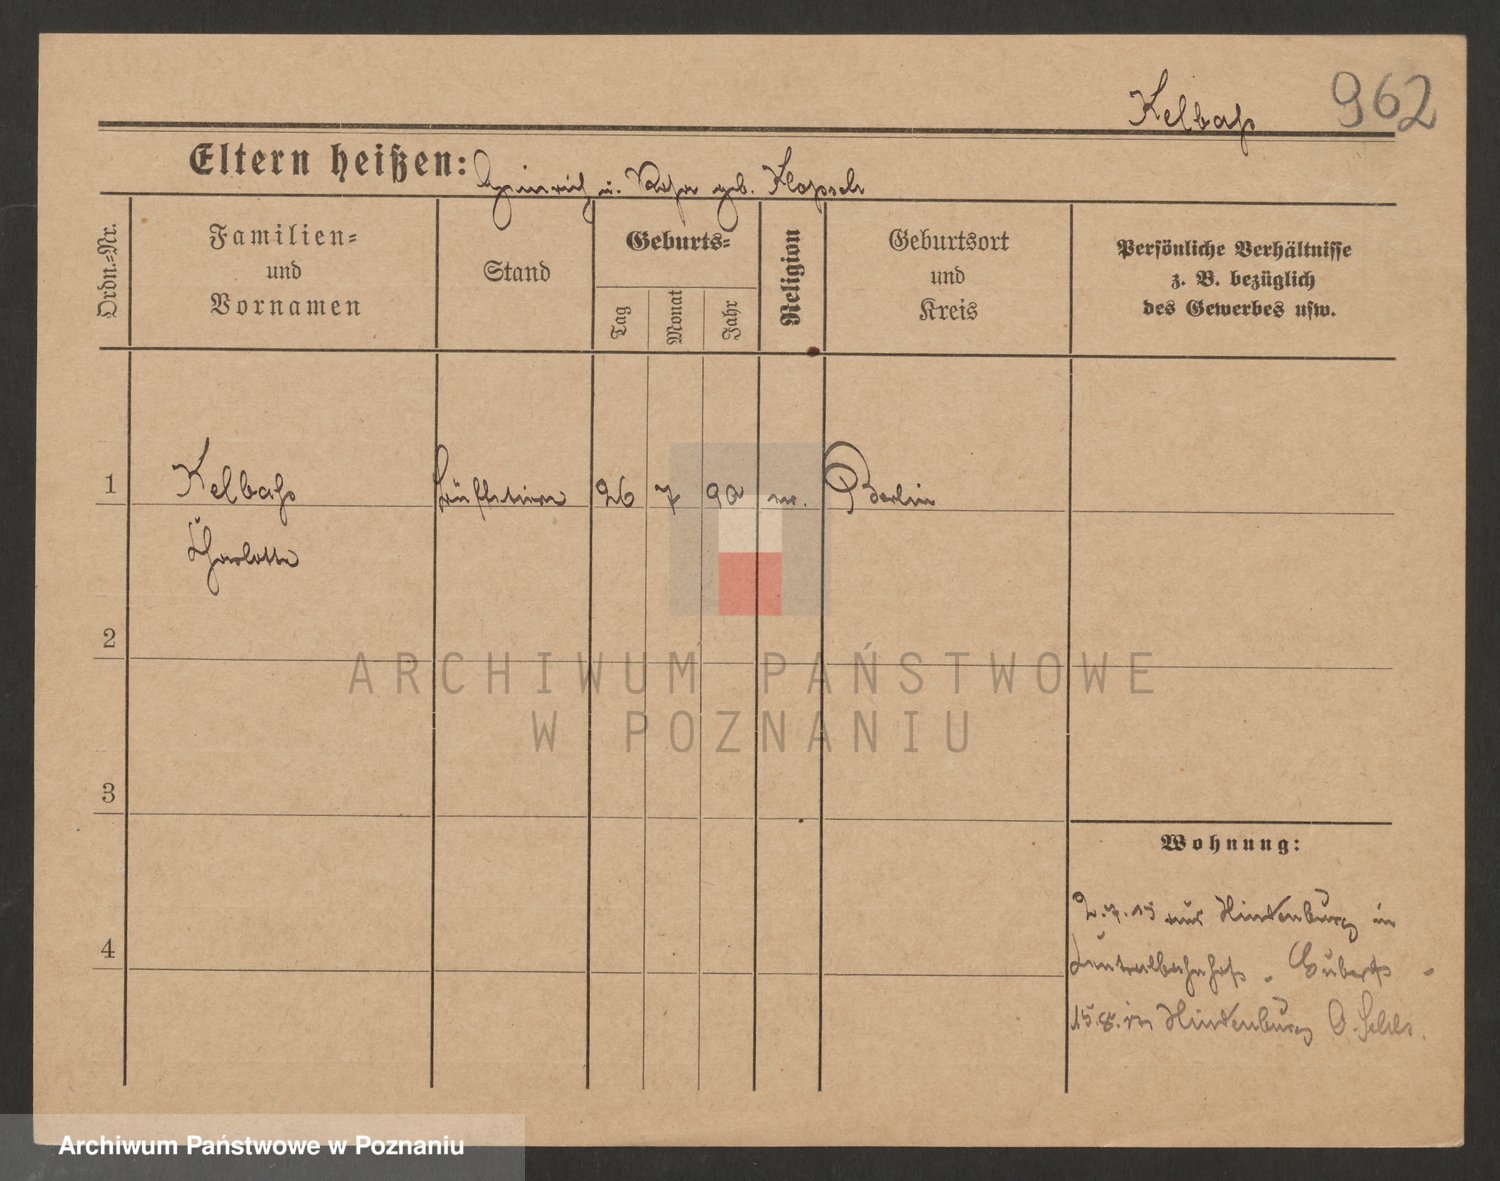 962
Kelbaß
Eltern heißen: Heinrich u. geb.
Ordn.=Nr.
Familien=
und
Vornamen
Stand
Geburts=
Tag
Monat
Jahr
Religion
Geburtsort
und
Kreis
Persönliche Verhältnisse
z. B. bezüglich
des Gewerbes usw.
1
Kelbaß 26 7 90 Berlin
Charlotte
2
ARCHIWUM PAŃSTWOWE
W POZNANIU
3
Wohnung:
2.7.15 aus Hindenburg in
4
Zentralbahnhof -
15.8. in Hindenburg O. Schles.
Archiwum Państwowe w Poznaniu